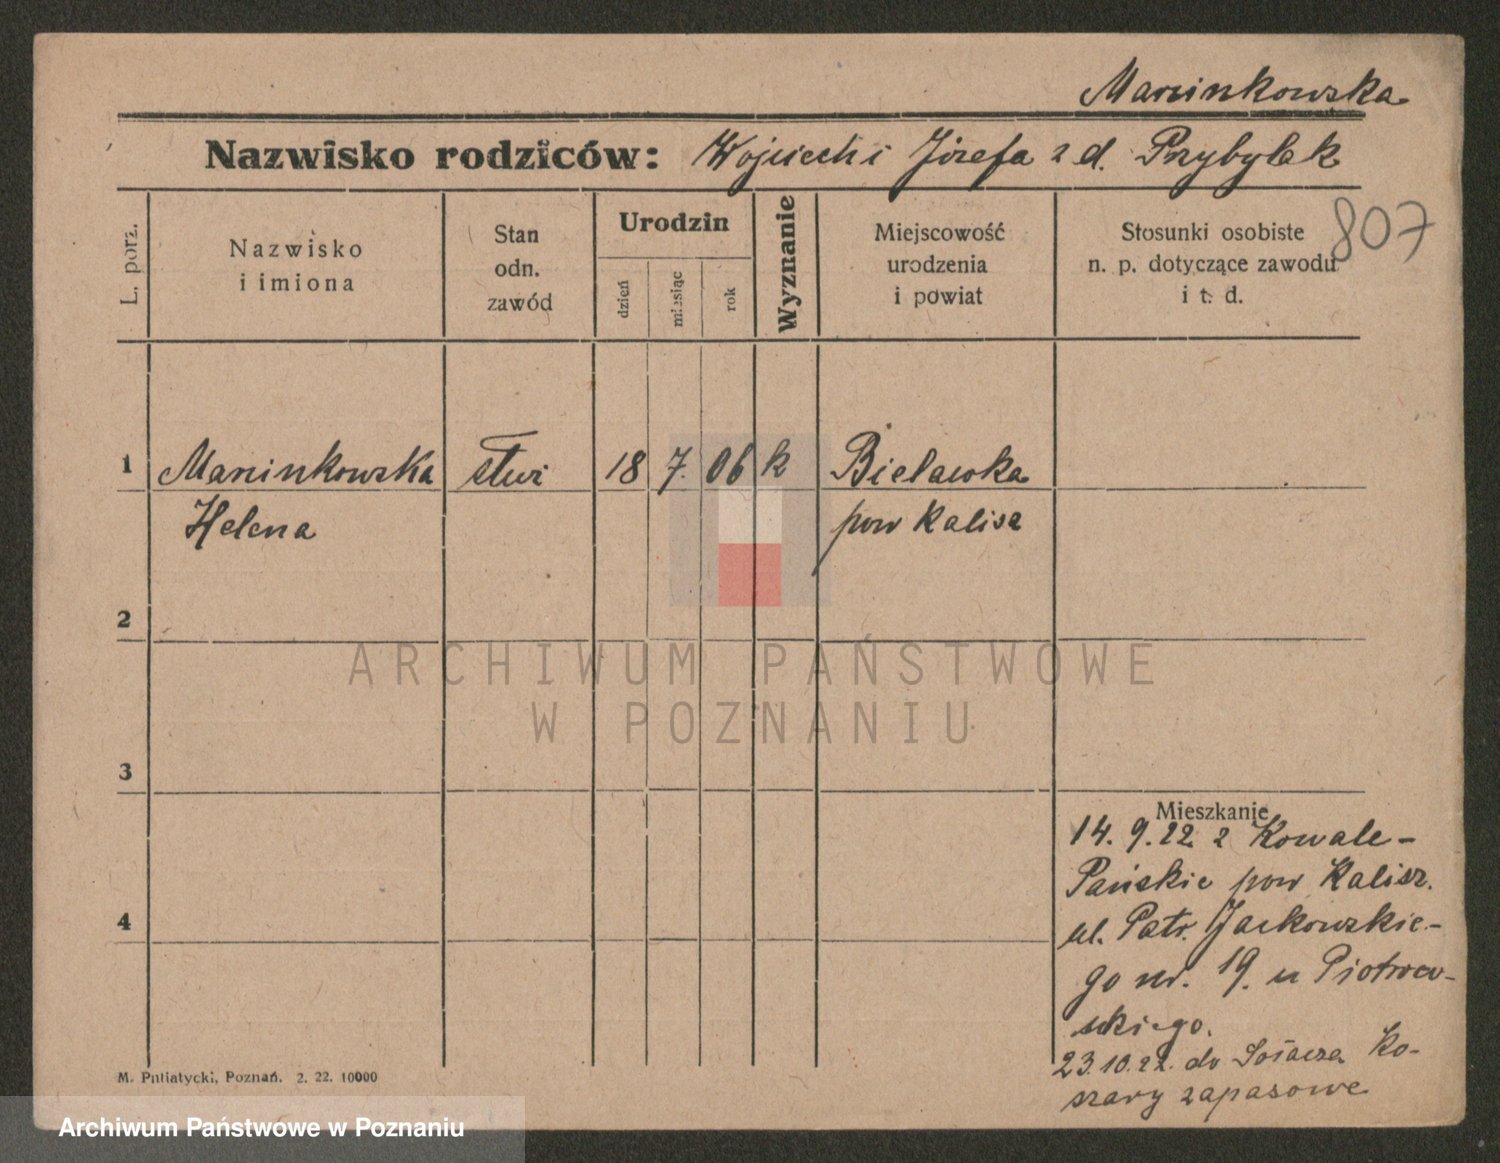 Marcinkowska
Nazwisko rodziców: Wojciech i Józefa z d. Przybylak
807
L. porz.
Nazwisko
i imiona
Stan
odn.
zawód
Urodzin
dzień
miesiąc
rok
Wyznanie
Miejscowość
urodzenia
i powiat
Stosunki osobiste
n. p. dotyczące zawodu
i t. d.
1 Marcinkowska 18 7. 06 k Bielawka
Helena pow Kalisz
2
ARCHIWUM PAŃSTWOWE
W POZNANIU
3
Mieszkanie
14. 9. 22 z Kowale-
Pańskie pow Kalisz.
4
ul. Patr. Jackowskie-
go nr. 19. u Piotrow-
skiego.
23.10.22. do Sołacza Ko-
szary zapasowe
M. Putiatycki, Poznań. 2. 22. 10000
Archiwum Państwowe w Poznaniu